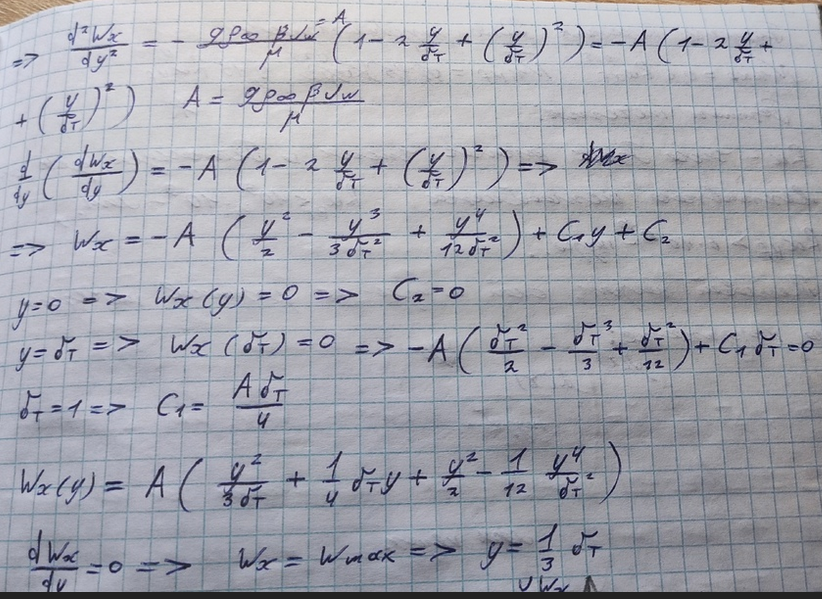 => d²Wx/dy² = - gρ∞βνw/μ ^{=A} (1 - 2 y/δт + (y/δт)²) = -A (1 - 2 y/δт +
+ (y/δт)²) A = gρ∞βνw/μ
d/dy (dWx/dy) = -A (1 - 2 y/δт + (y/δт)²) =>
=> Wx = -A (y²/2 - y³/3δт² + y⁴/12δт²) + C₁y + C₂
y=0 => Wx(y) = 0 => C₂=0
y=δт => Wx(δт) = 0 => -A(δт²/2 - δт³/3 + δт²/12) + C₁δт=0
δт=1 => C₁ = Aδт/4
Wx(y) = A (y²/3δт + 1/4 δтy + y²/2 - 1/12 y⁴/δт²)
dWx/dy = 0 => Wx = Wmax => y = 1/3 δт